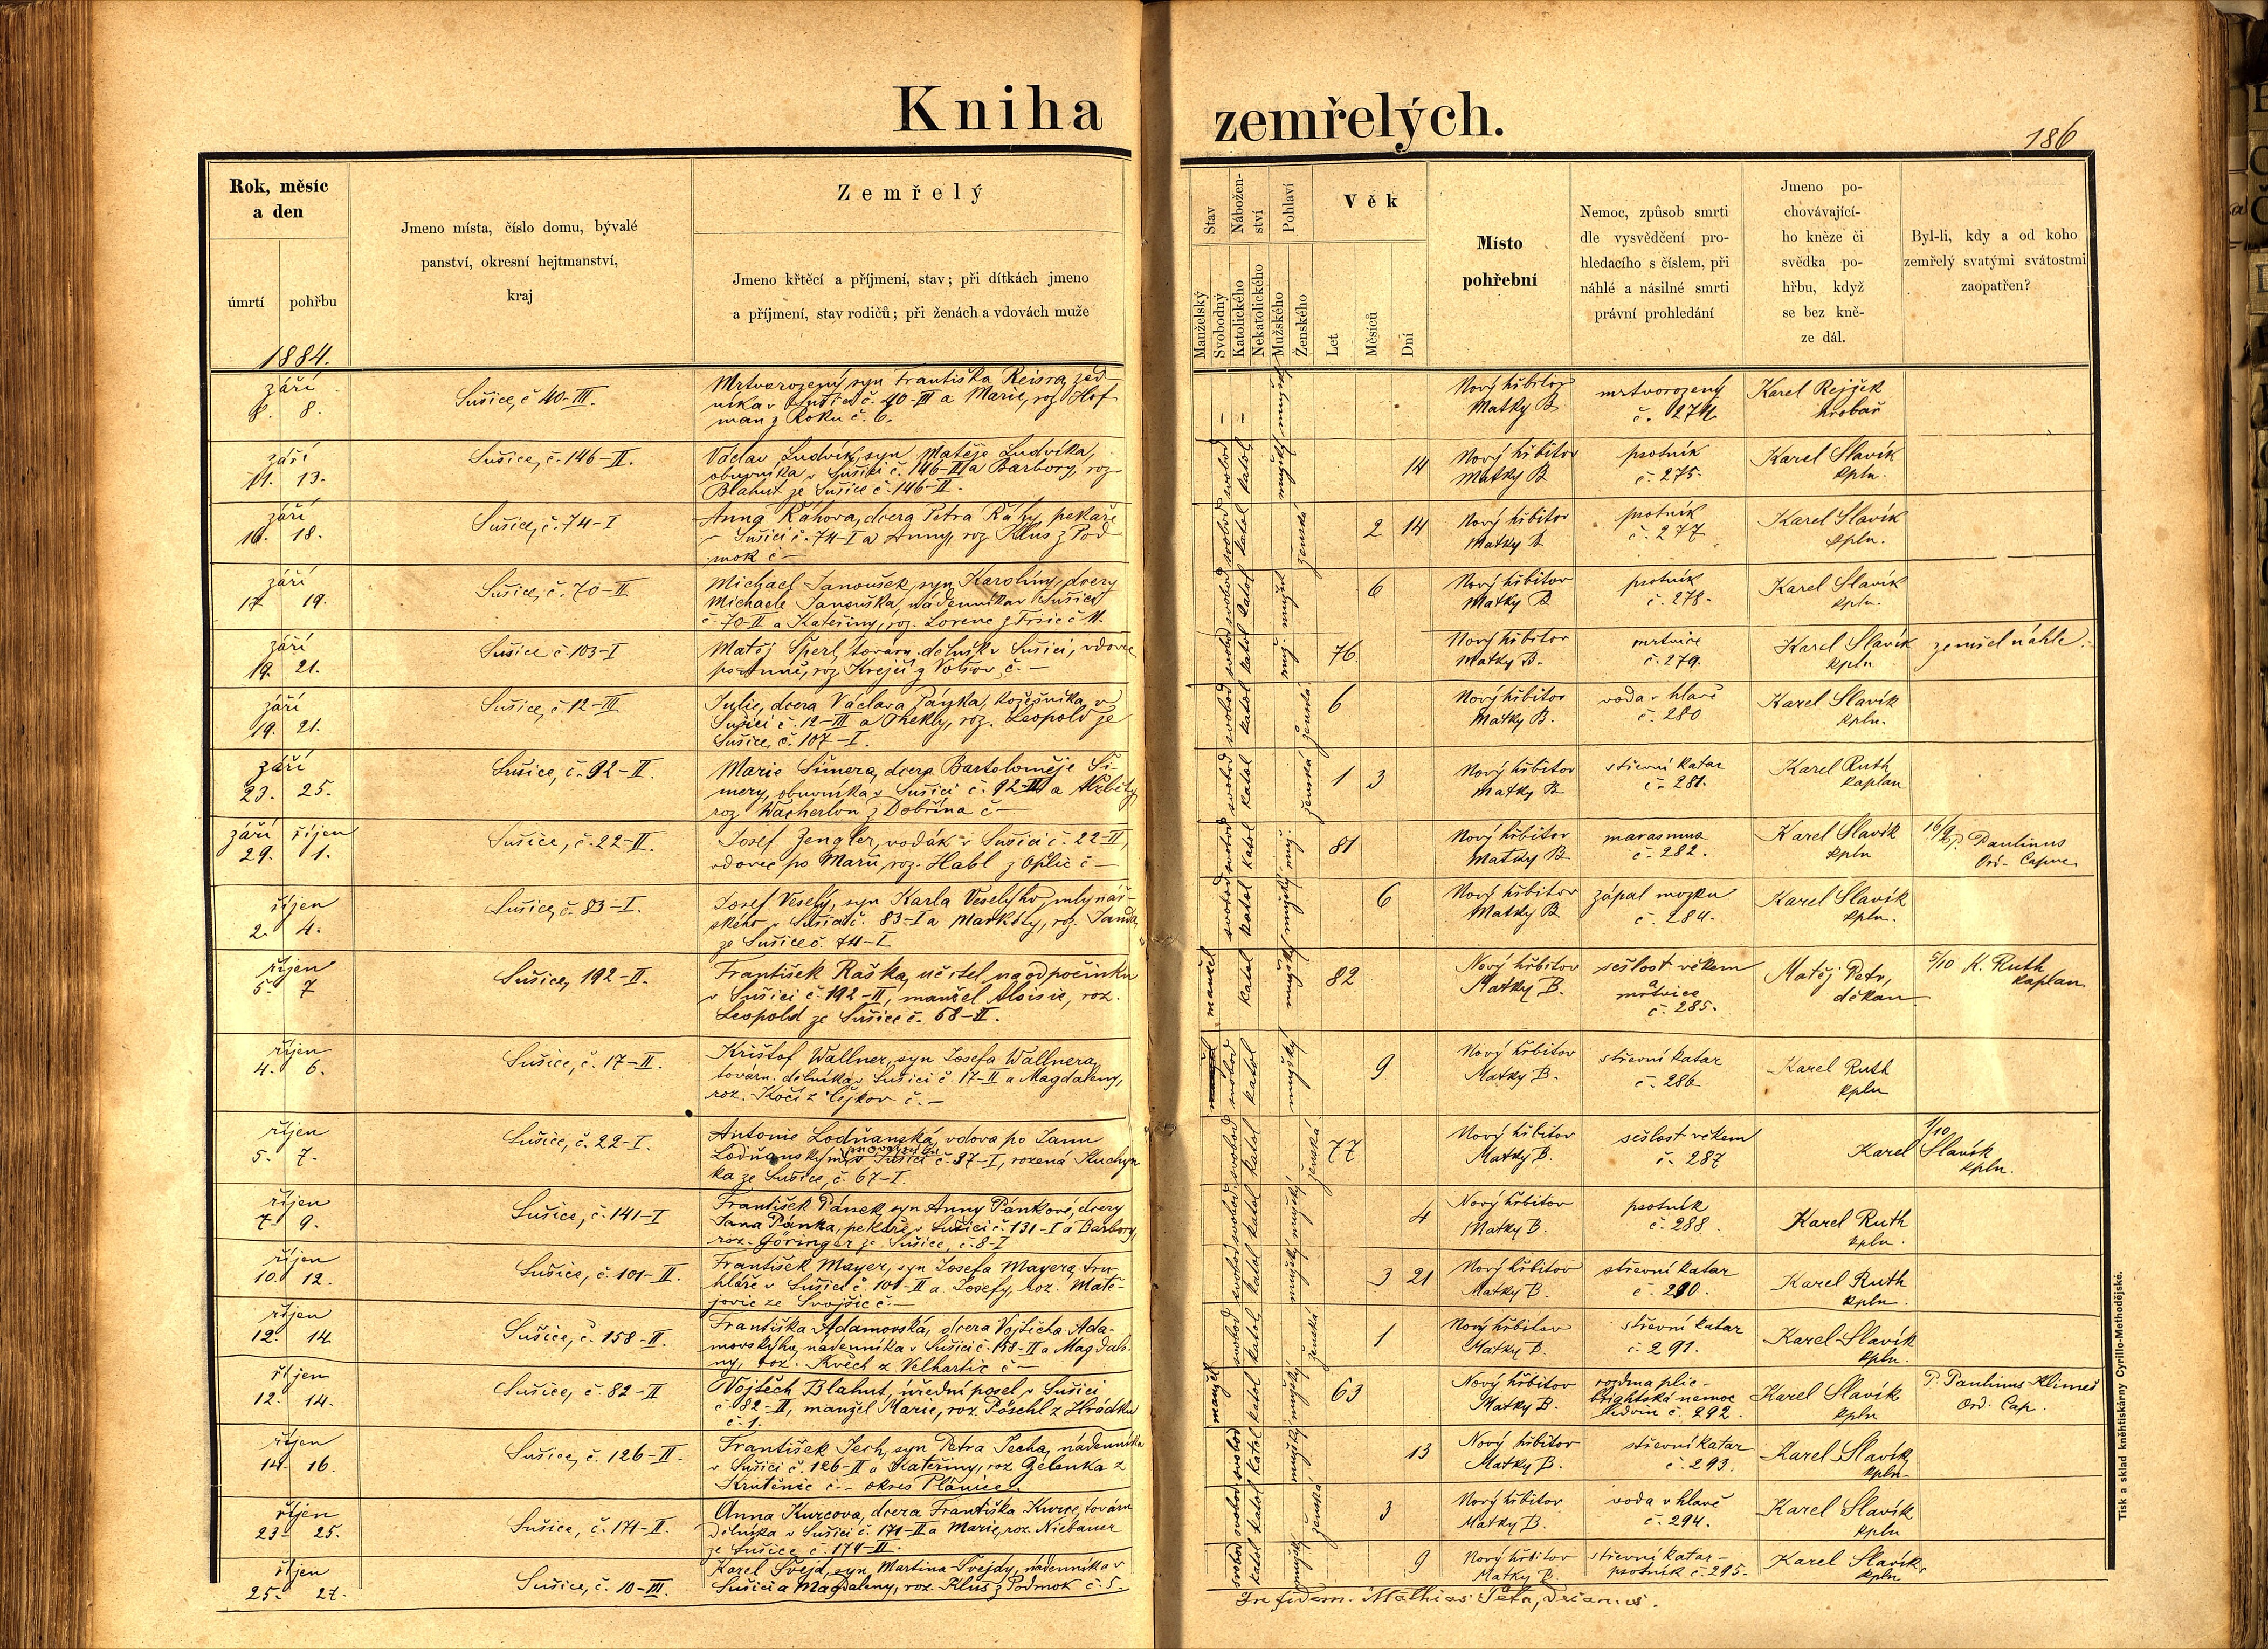 Kniha zemřelých.
186
Rok, měsíc
a den
úmrtí
pohřbu
Jmeno místa, číslo domu, bývalé
panství, okresní hejtmanství,
kraj
Zemřelý
Jmeno křtěcí a příjmení, stav; při dítkách jmeno
a příjmení, stav rodičů; při ženách a vdovách muže
Stav
Manželský
Svobodný
Nábožen-
ství
Katolického
Nekatolického
Pohlaví
Mužského
Ženského
Věk
Let
Měsíců
Dní
Místo
pohřební
Nemoc, způsob smrti
dle vysvědčení pro-
hledacího s číslem, při
náhlé a násilné smrti
právní prohledání
Jmeno po-
chovávající-
ho kněze či
svědka po-
hřbu, když
se bez kně-
ze dál.
Byl-li, kdy a od koho
zemřelý svatými svátostmi
zaopatřen?
1884.
září
8. 8.
Sušice, č 40-III.
Mrtvorozený syn Františka Reisra, zed-
níka v Sušici č. 40-III a Marie, roz. Hof
man z Roku č. 6.
Nový hřbitov
Matky B
mrtvorozený
č. 274
Karel Rejšek
hrobař
září
11. 13.
Sušice, č. 146-II.
Václav Ludvík, syn Matěje Ludvíka,
obuvníka v Sušici č. 146-II a Barbory, roz
Blahut ze Sušice č. 146-II.
svobod katol mužský
14
Nový hřbitov
Matky B
psotník
č. 275.
Karel Slavík
kpln.
září
16. 18.
Sušice, č. 74-I
Anna Ráhova, dcera Petra Ráhy, pekaře
v Sušici č. 74-I a Anny, roz. Klus z Pod
mok č -
svobod katol ženská
2 14
Nový hřbitov
Matky B
psotník
č. 277
Karel Slavík
kpln.
září
17 19.
Sušice, č. 70-II
Michael Janoušek, syn Karolíny, dcery
Michaela Janouška, nádenníka v Sušici
č. 70-II a Kateřiny, roz. Lorenc z Frsic č 11.
svobod katol mužsk
6
Nový hřbitov
Matky B
psotník
č. 278.
Karel Slavík
kpln.
září
19. 21.
Sušice č. 103-I
Matěj Šperl, továrn. dělník v Sušici, vdovec
po Anně, roz. Krejčí z č. -
svobod katol muž.
76.
Nový hřbitov
Matky B.
mrtvice
č. 279.
Karel Slavík
kpln
zemřel náhle.
září
19. 21.
Sušice, č. 12-III
Julie, dcera Václava Pánka, kožešníka v
Sušici č. 12-III a Thekly, roz. Leopold ze
Sušice, č. 107-I.
svobod katol ženská
6
Nový hřbitov
Matky B.
voda v hlavě
č. 280
Karel Slavík
kpln.
září
23. 25.
Sušice, č. 92-II.
Marie Šimera, dcera Bartoloměje Ši-
mery, obuvníka v Sušici č. 92-II a Alžběty
roz. Wacherlon z Dobřína č -
svobod katol ženská
1 3
Nový hřbitov
Matky B
střevní katar
č. 281.
Karel Ruth
kaplan
září říjen
29. 1.
Sušice, č. 22-II.
Josef Zengler, vodák v Sušici č. 22-II,
vdovec po Marii, roz. Habl z Oplic č -
svobod katol muž.
81
Nový hřbitov
Matky B
marasmus
č. 282.
Karel Slavík
kpln
16/9 P. Paulinus
Ord. Capuc.
říjen
2. 4.
Sušice, č. 83-I.
Josef Veselý, syn Karla Veselýho, mlynář-
ského v Sušici č. 83-I a Markéty, roz. Janda,
ze Sušice č. 74-I
svobod katol mužský
6
Nový hřbitov
Matky B
zápal mozku
č. 284.
Karel Slavík
kpln.
říjen
5. 7
Sušice, 192-II.
František Raška, učitel na odpočinku
v Sušici č. 192-II, manžel Aloisie, roz.
Leopold ze Sušice č. 68-II.
manžel katol mužský
82
Nový hřbitov
Matky B.
sešlost věkem
a
mrtvice
č. 285.
Matěj Petr,
děkan
5/10 K. Ruth
kaplan
říjen
4. 6.
Sušice, č. 17-II.
Krištof Wallner, syn Josefa Wallnera,
továrn. dělníka v Sušici č. 17-II a Magdaleny,
roz. Kočí z Čejkov č. -
svobod katol mužský
9
Nový hřbitov
Matky B.
střevní katar
č. 286
Karel Ruth
kpln
říjen
5. 7.
Sušice, č. 22-I.
Antonie Lodňanská, vdova po Janu
Lodňanským, v Sušici č. 37-I, rozená Kuchyn
ka ze Sušice, č. 67-I.
svobod katol ženská
77
Nový hřbitov
Matky B.
sešlost věkem
č. 287
1/10
Karel Slavík
kpln.
říjen
7. 9.
Sušice, č. 141-I
František Pánek, syn Anny Pánkové, dcery
Jana Pánka, pekaře v Sušici č. 131-I a Barbory,
roz. Göringer ze Sušice, č. 8-I
svobod katol mužský
4
Nový hřbitov
Matky B.
psotník
č. 288.
Karel Ruth
kpln.
říjen
10. 12.
Sušice, č. 101-II.
František Mayer, syn Josefa Mayera, tru-
hláře v Sušici č. 101-II a Josefy, roz. Matě-
jovic ze Svojšic č. -
svobod katol mužský
3 21
Nový hřbitov
Matky B.
střevní katar
č. 290.
Karel Ruth
kpln.
říjen
12. 14.
Sušice, č. 158-II.
Františka Adamovská, dcera Vojtěcha Ada-
movskýho, nádenníka v Sušici č. 158-II a Magdale-
ny, roz. Květ z Velhartic č -
svobod katol ženská
1
Nový hřbitov
Matky B.
střevní katar
č. 291.
Karel Slavík
kpln.
říjen
12. 14.
Sušice, č. 82-II
Vojtěch Blahut, úřední posel v Sušici
č. 82-II, manžel Marie, roz. Pöschl z Hrádku
č. 1.
manžel katol mužský
63
Nový hřbitov
Matky B.
rozdma plic -
brightská nemoc
ledvin č. 292.
Karel Slavík
kpln
P. Paulinus Klimeš
Ord. Cap.
říjen
14. 16.
Sušice, č. 126-II.
František Jech, syn Petra Jecha, nádenníka
v Sušici č. 126-II a Kateřiny, roz. Gelenka z
Kruténic č - okres Plánice.
svobod katol mužský
13
Nový hřbitov
Matky B.
střevní katar
č. 293.
Karel Slavík
kpln
říjen
23 25.
Sušice, č. 171-II.
Anna Kurcova, dcera Františka Kurce, továrn.
dělníka v Sušici č. 171-II a Marie, roz. Niebauer
ze Sušice č. 174-II.
svobod katol ženská
3
Nový hřbitov
Matky B.
voda v hlavě
č. 294.
Karel Slavík
kpln
říjen
25. 27.
Sušice, č. 10-III.
Karel Švejd, syn Martina Švejdy, nádenníka v
Sušici a Magdaleny, roz. Klus z Podmok č. 5.
svobod katol mužský
9
Nový hřbitov
Matky B.
střevní katar -
psotník č. 295.
Karel Slavík
kpln
In fidem. Mathias Petr, Decanus.
Tisk a sklad kněhtiskárny Cyrillo-Methodějské.